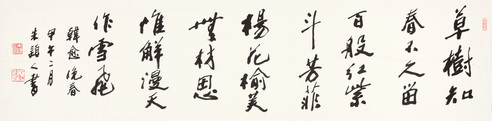 草樹知
春不久留
百般紅紫
斗芳菲
楊花榆莢
無材思
惟解漫天
作雪飛
韓愈晚春
甲午二月
朱穎人書